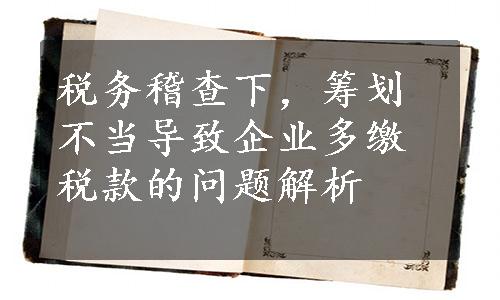 税务稽查下，筹划
不当导致企业多缴
税款的问题解析